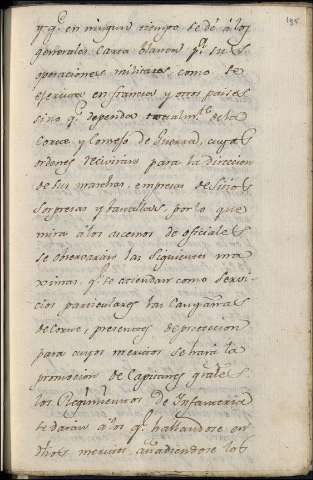 195
y q.e en ningun tiempo se dé á los
generales carta blanca p.a sus
operaciones militares, como se
executa en francia y otros paises
sino q.e dependa totalm.te de la
Corte y Consejo de Guerra, cuyas
ordenes reciviran para la direccion
de sus marchas, empresas de Sitios
sorpresas y batallas, por lo que
mira á los ascensos de oficiales
se observarán las siguientes ma
ximas, q.e se atiendan como servi
cios particulares las Campañas
de Corte, presentes de proteccion
para cuyos meritos se hará la
promocion de Capitanes grâles
los Regimientos de Infanteria
se darán á los q.e hallandose en
dhos meritos, añadiendose los